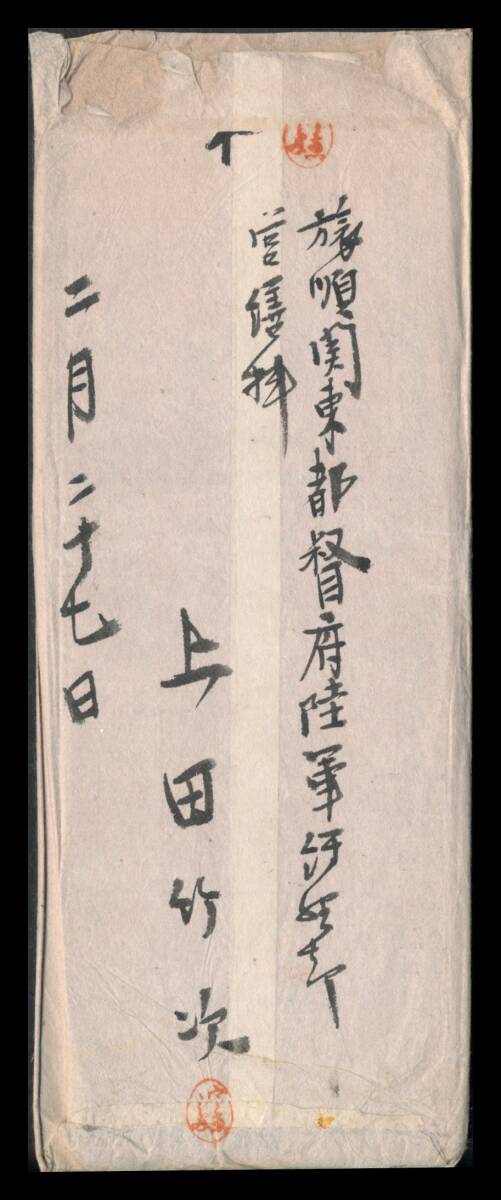 旅順関東都督府陸軍経理部
営繕班
上田竹次
二月二十七日